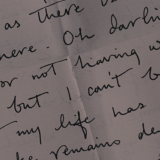 as there
here. Oh darli
or not having w
but I can't b
my life has
remains de